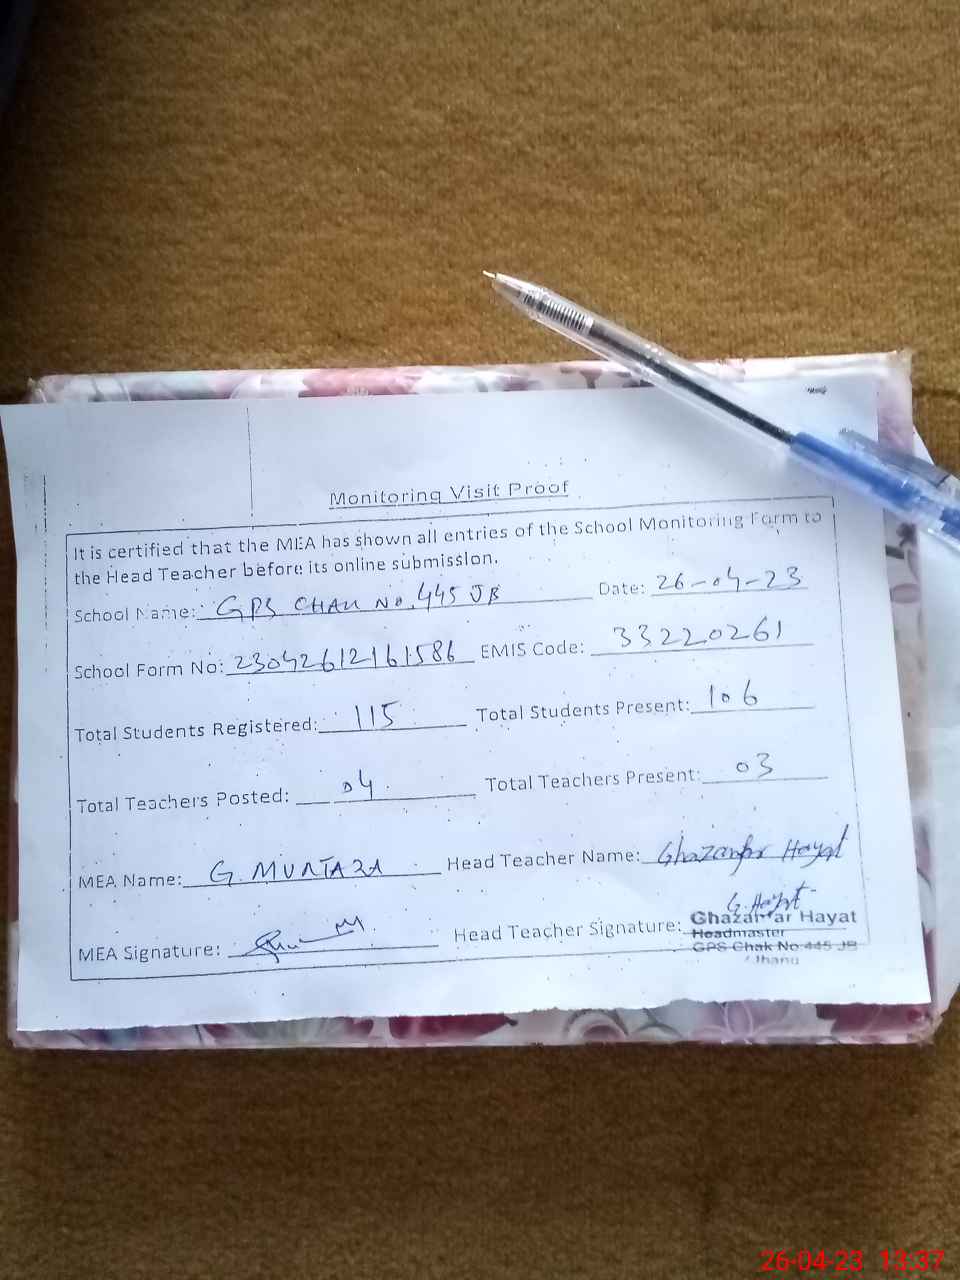 Monitoring Visit Proof
It is certified that the MEA has shown all entries of the School Monitoring Form to
the Head Teacher before its online submission.
School Name: GPS CHAK NO. 445 JB Date: 26-04-23
School Form No: 23042612161586 EMIS Code: 33220261
Total Students Registered: 115 Total Students Present: 106
Total Teachers Posted: 04 Total Teachers Present: 03
MEA Name: G. MURTAZA Head Teacher Name: Ghazanfar Hayat
G. Hayat
MEA Signature: Head Teacher Signature: Ghazanfar Hayat
Headmaster
GPS Chak No 445 JB
Jhang
26-04-23 13:37